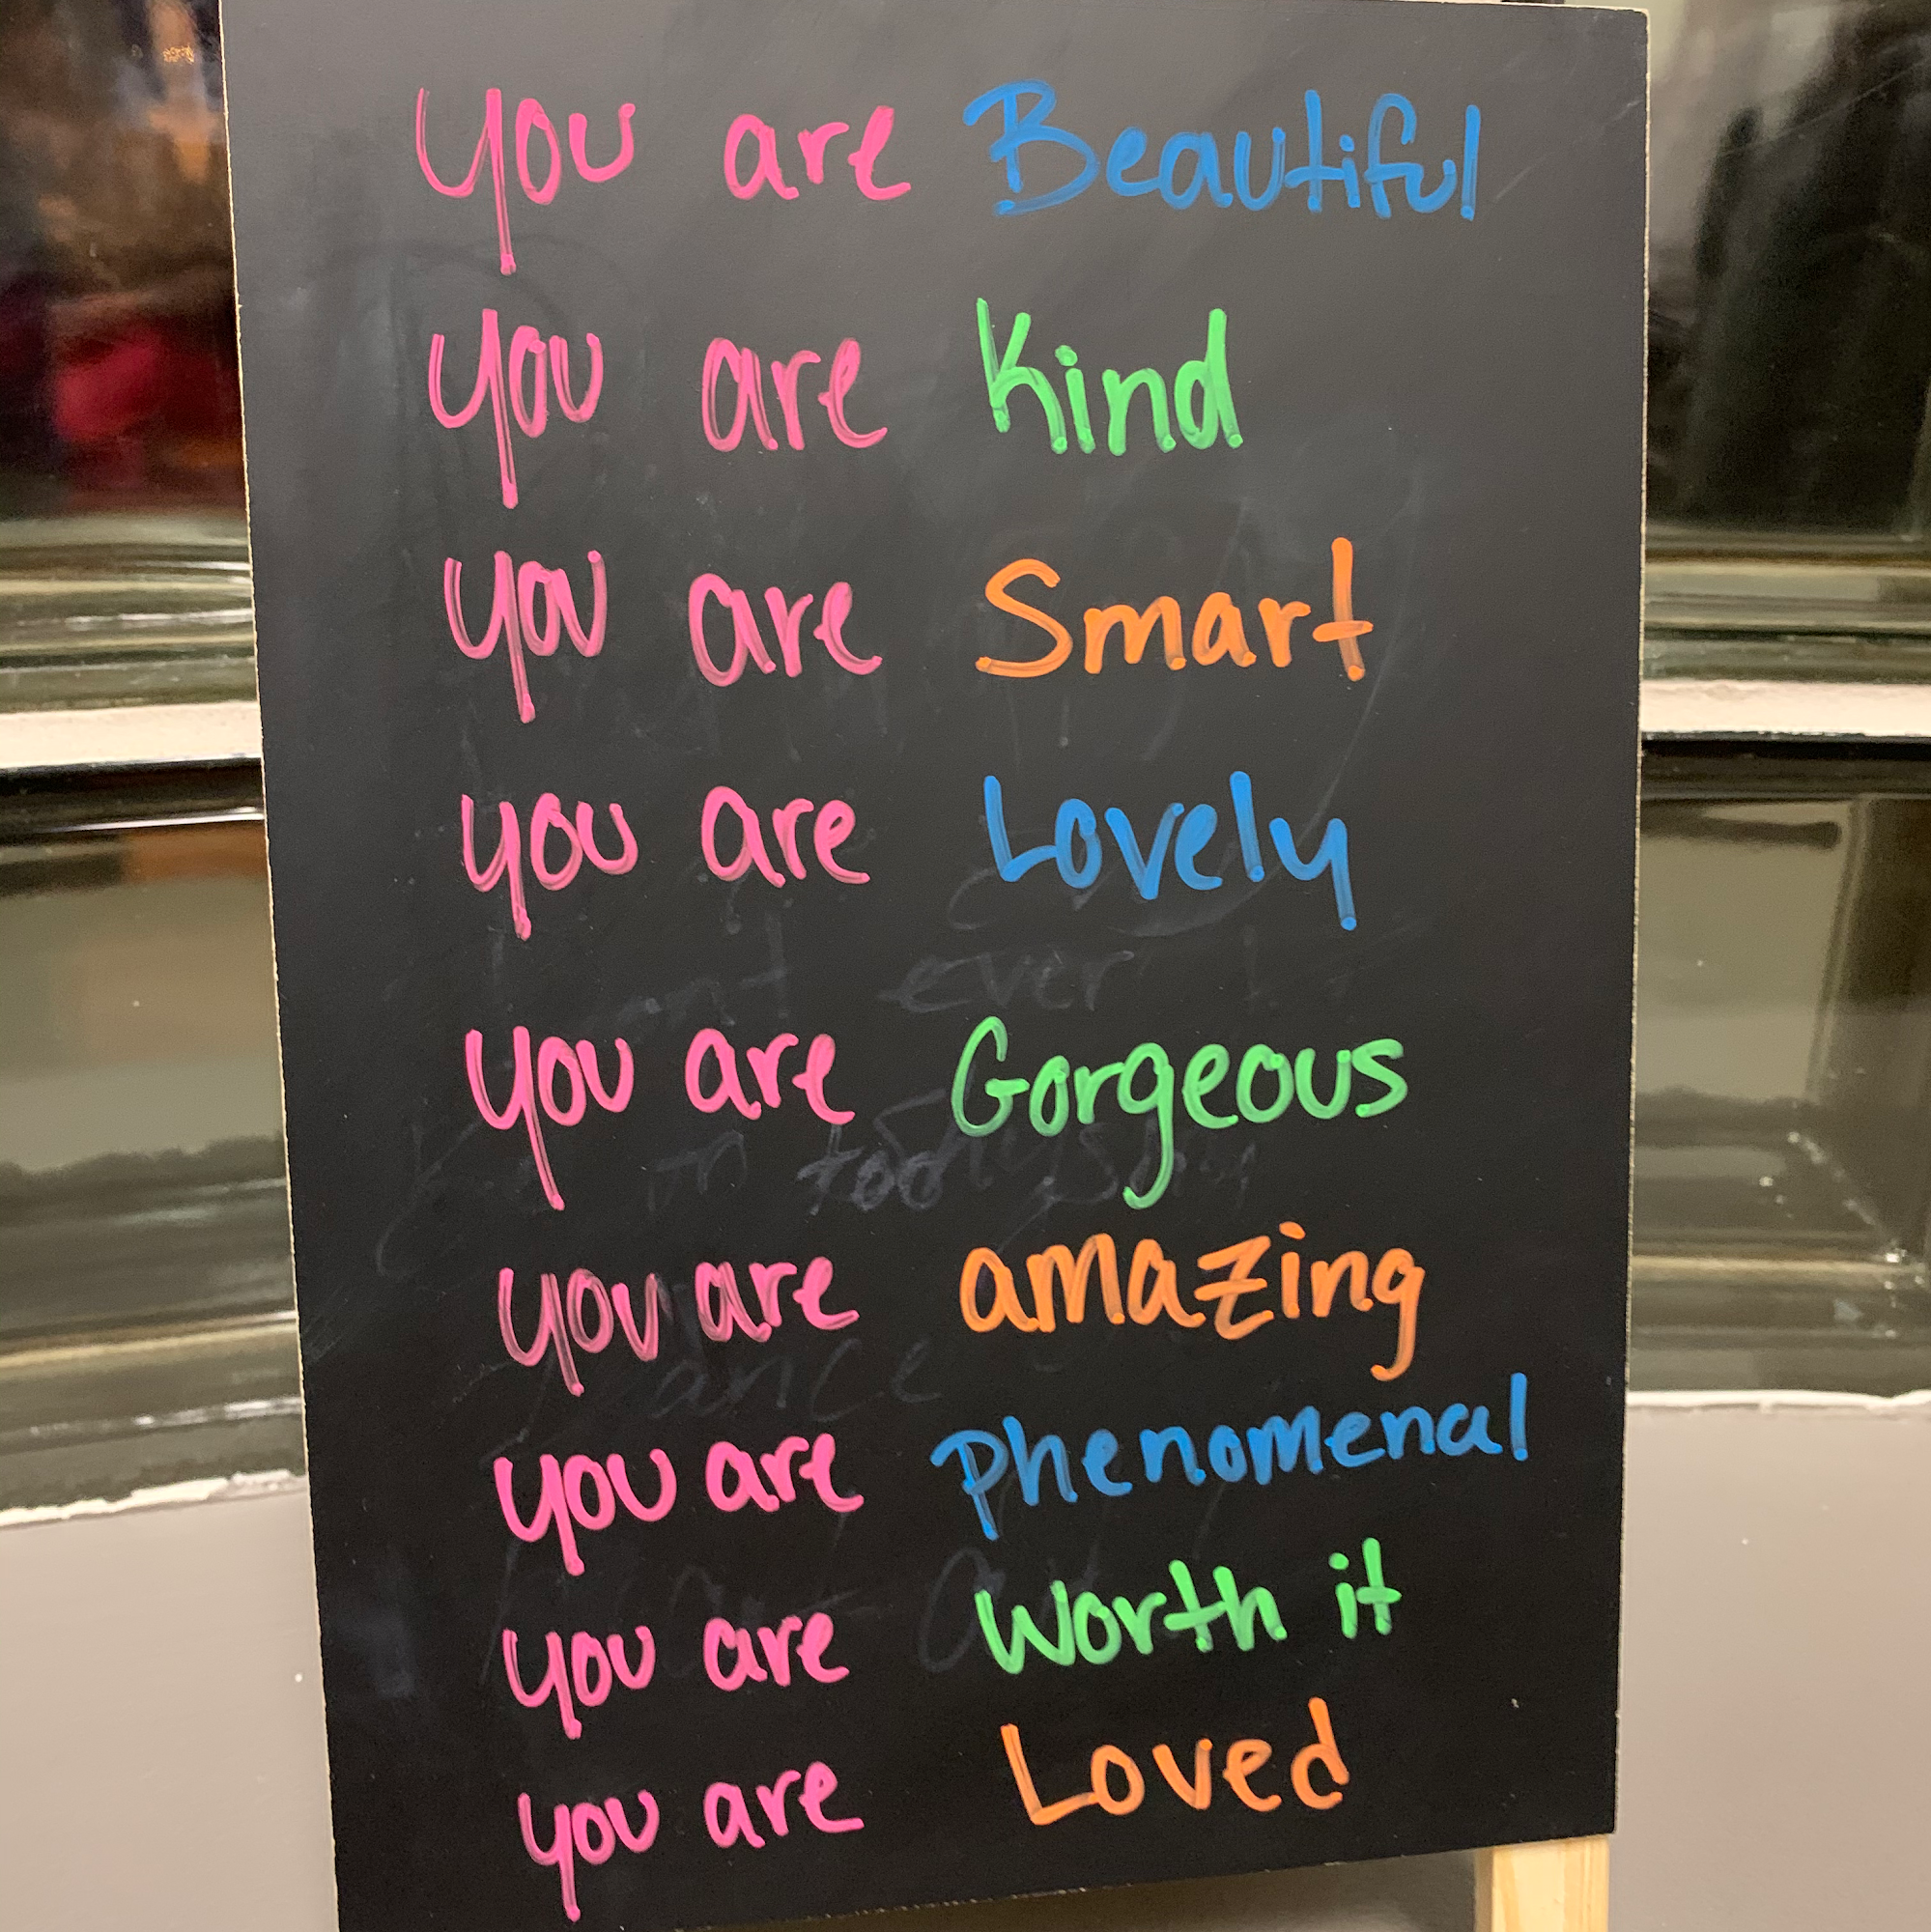 you are Beautiful
you are Kind
you are Smart
you are Lovely
you are Gorgeous
you are amazing
you are phenomenal
you are worth it
you are Loved